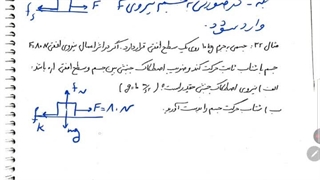 F
وارد شود.
مثال ۲۲: جسمی به جرم ۱۵kg روی یک سطح افقی قرار دارد. اگر در اثر اعمال نیروی افقی F=۸۰N
جسم با شتاب ثابت حرکت کند و ضریب اصطکاک جنبشی بین جسم و سطح افقی ۰/۱ باشد.
الف) نیروی اصطکاک جنبشی چقدر است؟
ب) شتاب حرکت جسم را بدست آورید.
F=۸۰N
mg